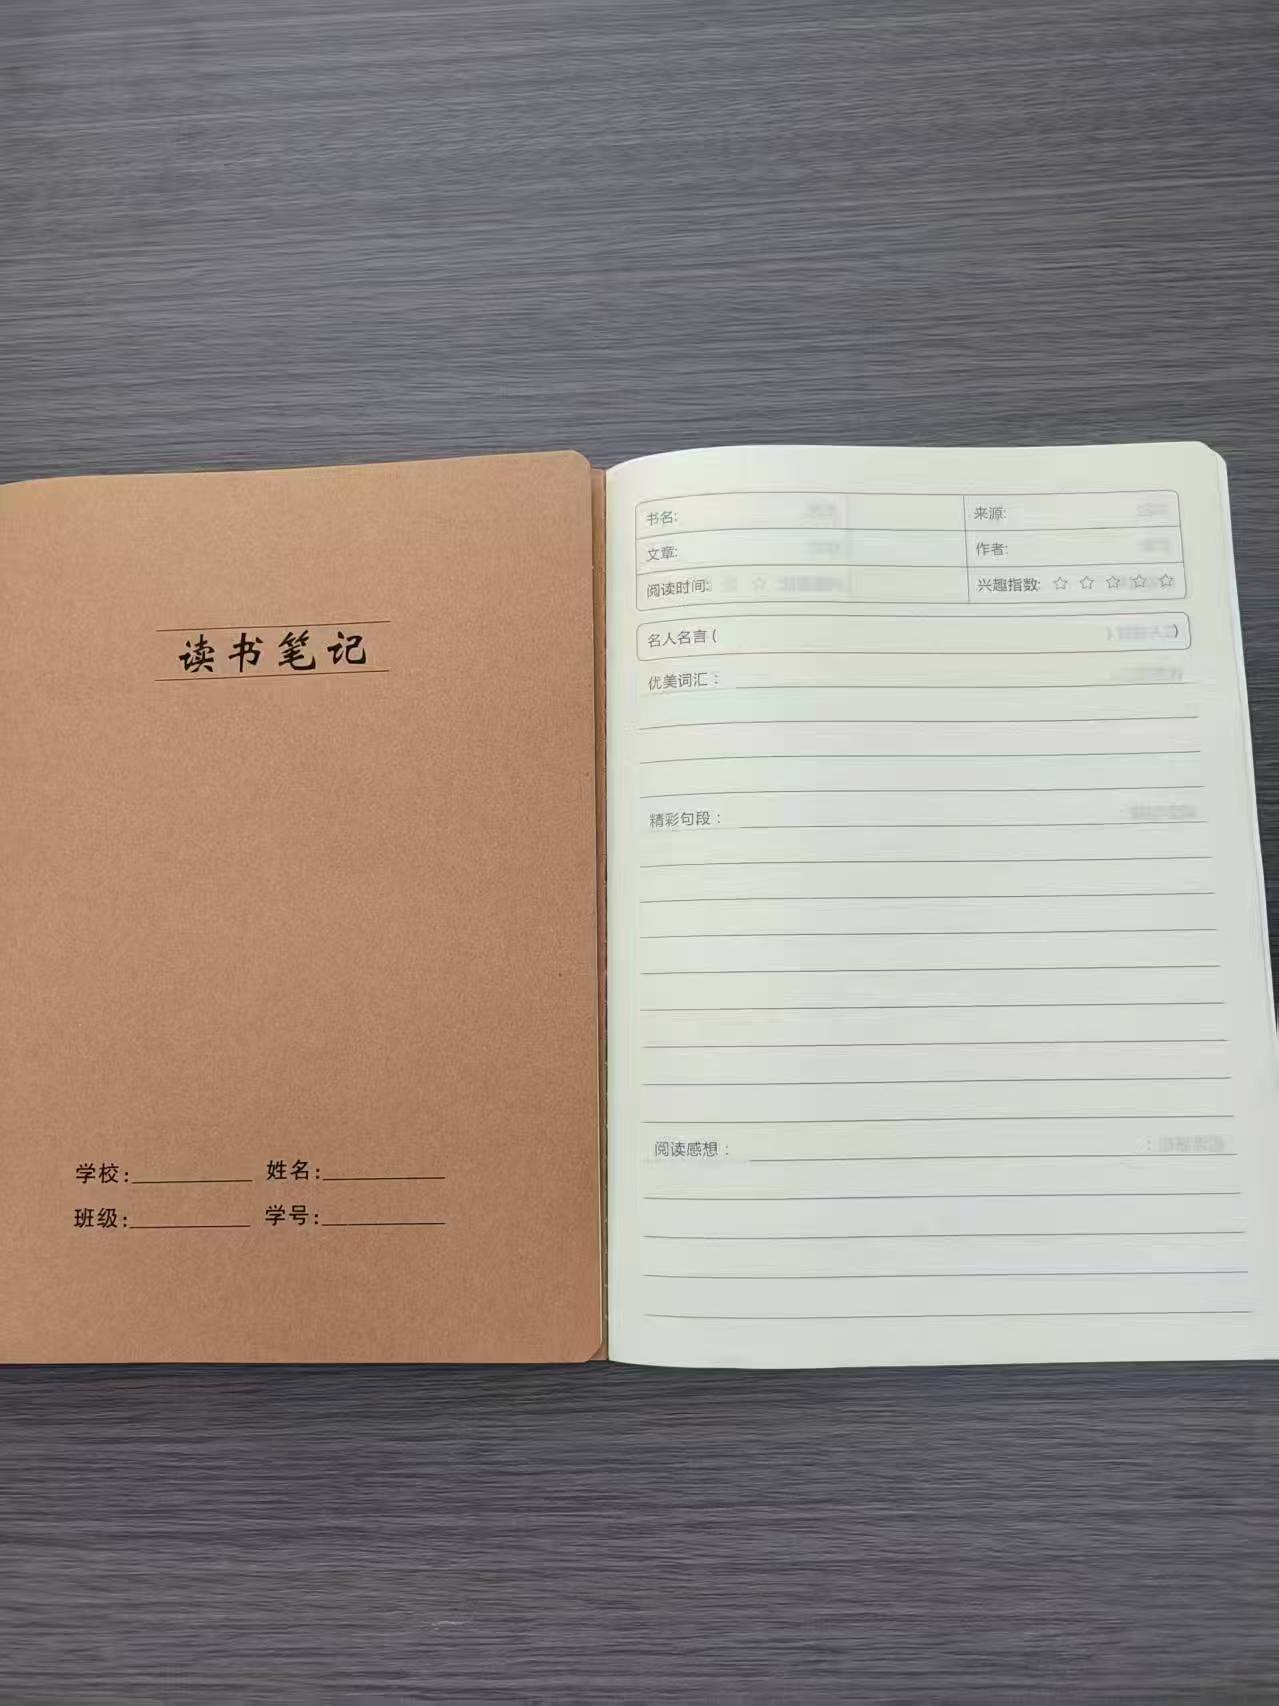 读书笔记
学校: 姓名:
班级: 学号:
书名: 来源:
文章: 作者:
阅读时间: 兴趣指数: ☆ ☆ ☆ ☆ ☆
名人名言 ( )
优美词汇：
精彩句段：
阅读感想：